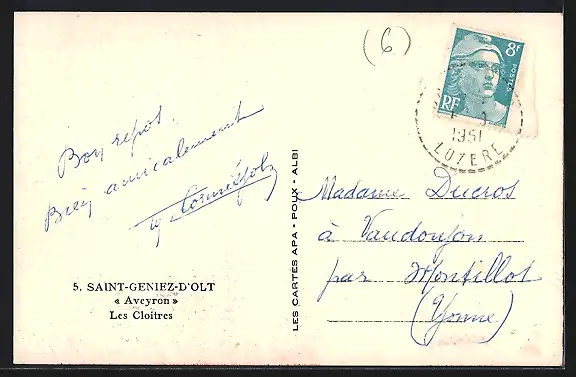 (6)
8F
POSTES
RF
1951
LOZERE
Bon repos.
Bien amicalement
Madame Ducros
à Vaudonjon
par Montillot
(Yonne)
LES CARTES APA - POUX - ALBI
5. SAINT-GENIEZ-D'OLT
« Aveyron »
Les Cloitres